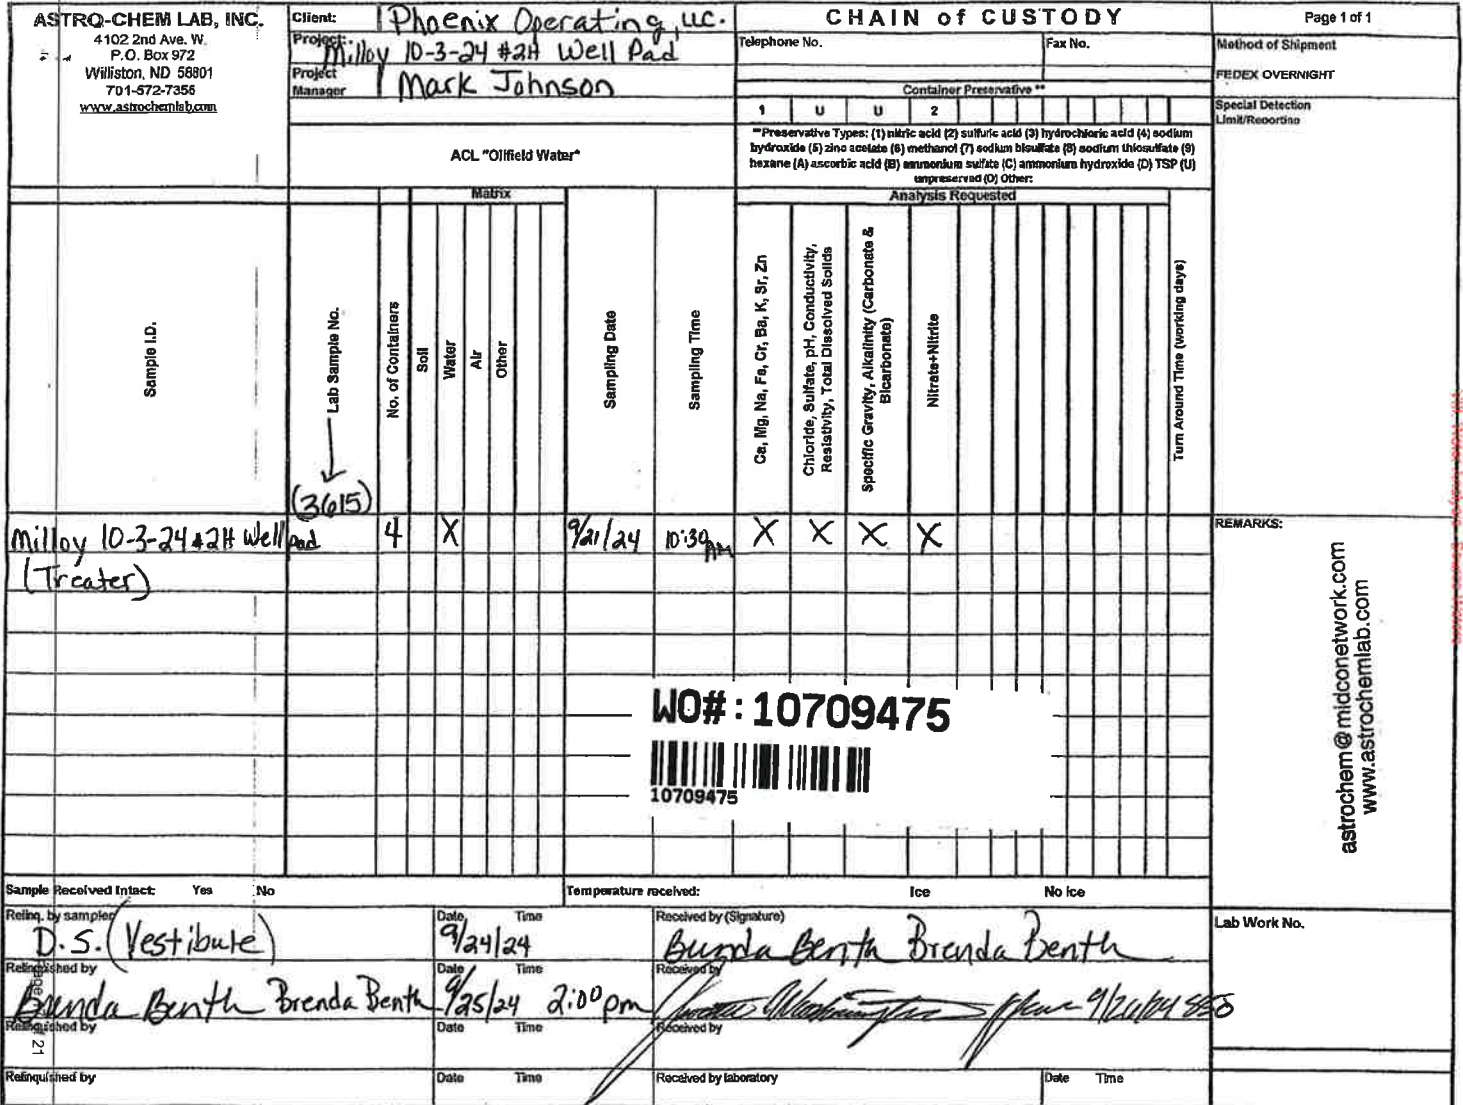 ASTRO-CHEM LAB, INC.
4102 2nd Ave. W.
P.O. Box 972
Williston, ND 58801
701-572-7355
www.astrochemlab.com
Client: Phoenix Operating, LLC.
Project: Milloy 10-3-24 #2H Well Pad
Project Manager Mark Johnson
CHAIN of CUSTODY
Telephone No.
Fax No.
Page 1 of 1
Method of Shipment
FEDEX OVERNIGHT
Special Detection
Limit/Reporting
Container Preservative **
1 U U 2
**Preservative Types: (1) nitric acid (2) sulfuric acid (3) hydrochloric acid (4) sodium
hydroxide (5) zinc acetate (6) methanol (7) sodium bisulfate (8) sodium thiosulfate (9)
hexane (A) ascorbic acid (B) ammonium sulfate (C) ammonium hydroxide (D) TSP (U)
unpreserved (O) Other:
ACL "Oilfield Water"
Matrix
Analysis Requested
Sample I.D.
Lab Sample No.
(3615)
No. of Containers
Soil
Water
Air
Other
Sampling Date
Sampling Time
Ca, Mg, Na, Fe, Cr, Ba, K, Sr, Zn
Chloride, Sulfate, pH, Conductivity,
Resistivity, Total Dissolved Solids
Specific Gravity, Alkalinity (Carbonate &
Bicarbonate)
Nitrate+Nitrite
Turn Around Time (working days)
Milloy 10-3-24 #2H Well Pad 4 X 9/21/24 10:30 AM X X X X
(Treater)
REMARKS:
astrochem@midconetwork.com
www.astrochemlab.com
WO#: 10709475
10709475
Sample Received Intact: Yes No
Temperature received: Ice No Ice
Relinq. by sampler D.S. (Vestibule)
Date Time 9/24/24
Received by (Signature) Brenda Benth Brenda Benth
Lab Work No.
Relinquished by Brenda Benth Brenda Benth
Date Time 9/25/24 2:00 pm
Received by 9/26/24 850
Relinquished by
Date Time
Received by
Relinquished by
Date Time
Received by laboratory
Date Time
21